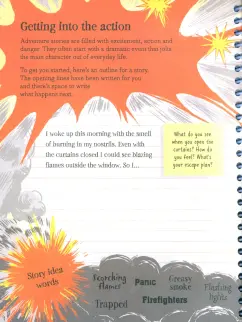 Getting into the action
Adventure stories are filled with excitement, action and
danger. They often start with a dramatic event that jolts
the main character out of everyday life.
To get you started, here's an outline for a story.
The opening lines have been written for you
and there's space to write
what happens next.
I woke up this morning with the smell
of burning in my nostrils. Even with
the curtains closed I could see blazing
flames outside the window. So I...
What do you see
when you open the
curtains? How do
you feel? What's
your escape plan?
Story idea
words
Scorching
flames
Panic
Greasy
smoke
Flashing
lights
Trapped
Firefighters